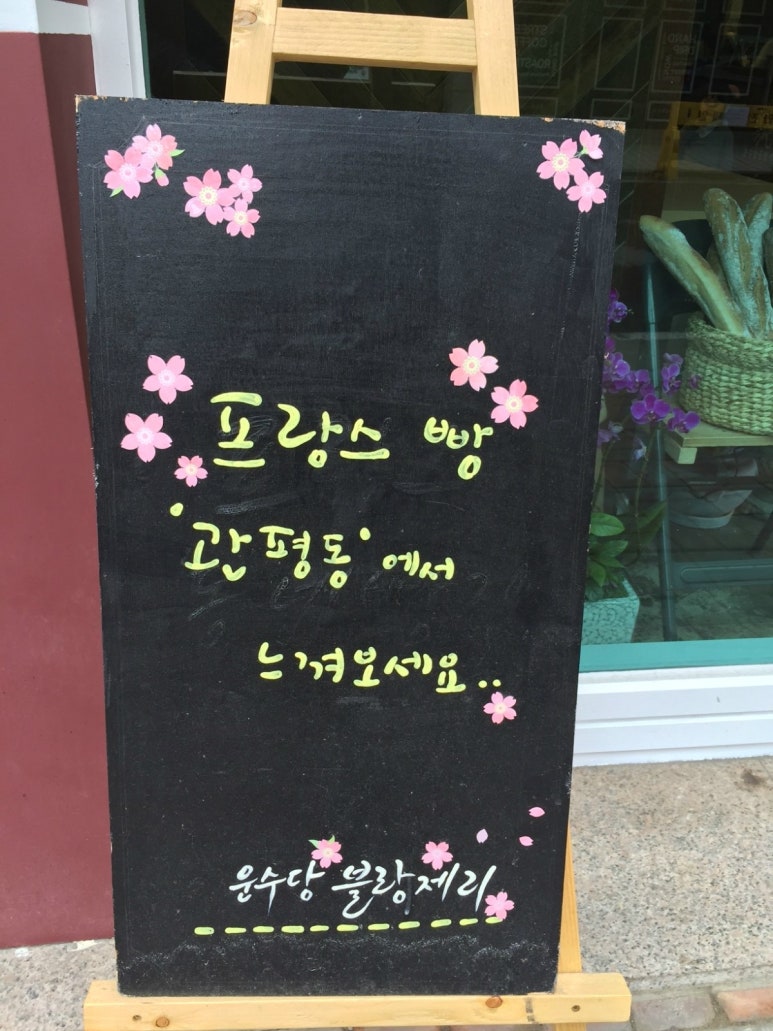 프랑스 빵
'관평동'에서
느껴보세요..
운수당 블랑제리